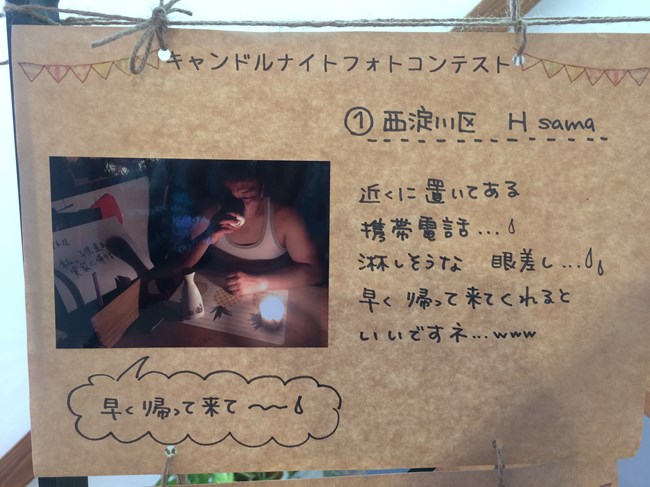 キャンドルナイトフォトコンテスト
① 西淀川区 H sama
近くに置いてある
携帯電話...
淋しそうな 眼差し...
早く帰って来てくれると
いいですネ...www
早く帰って来て〜〜